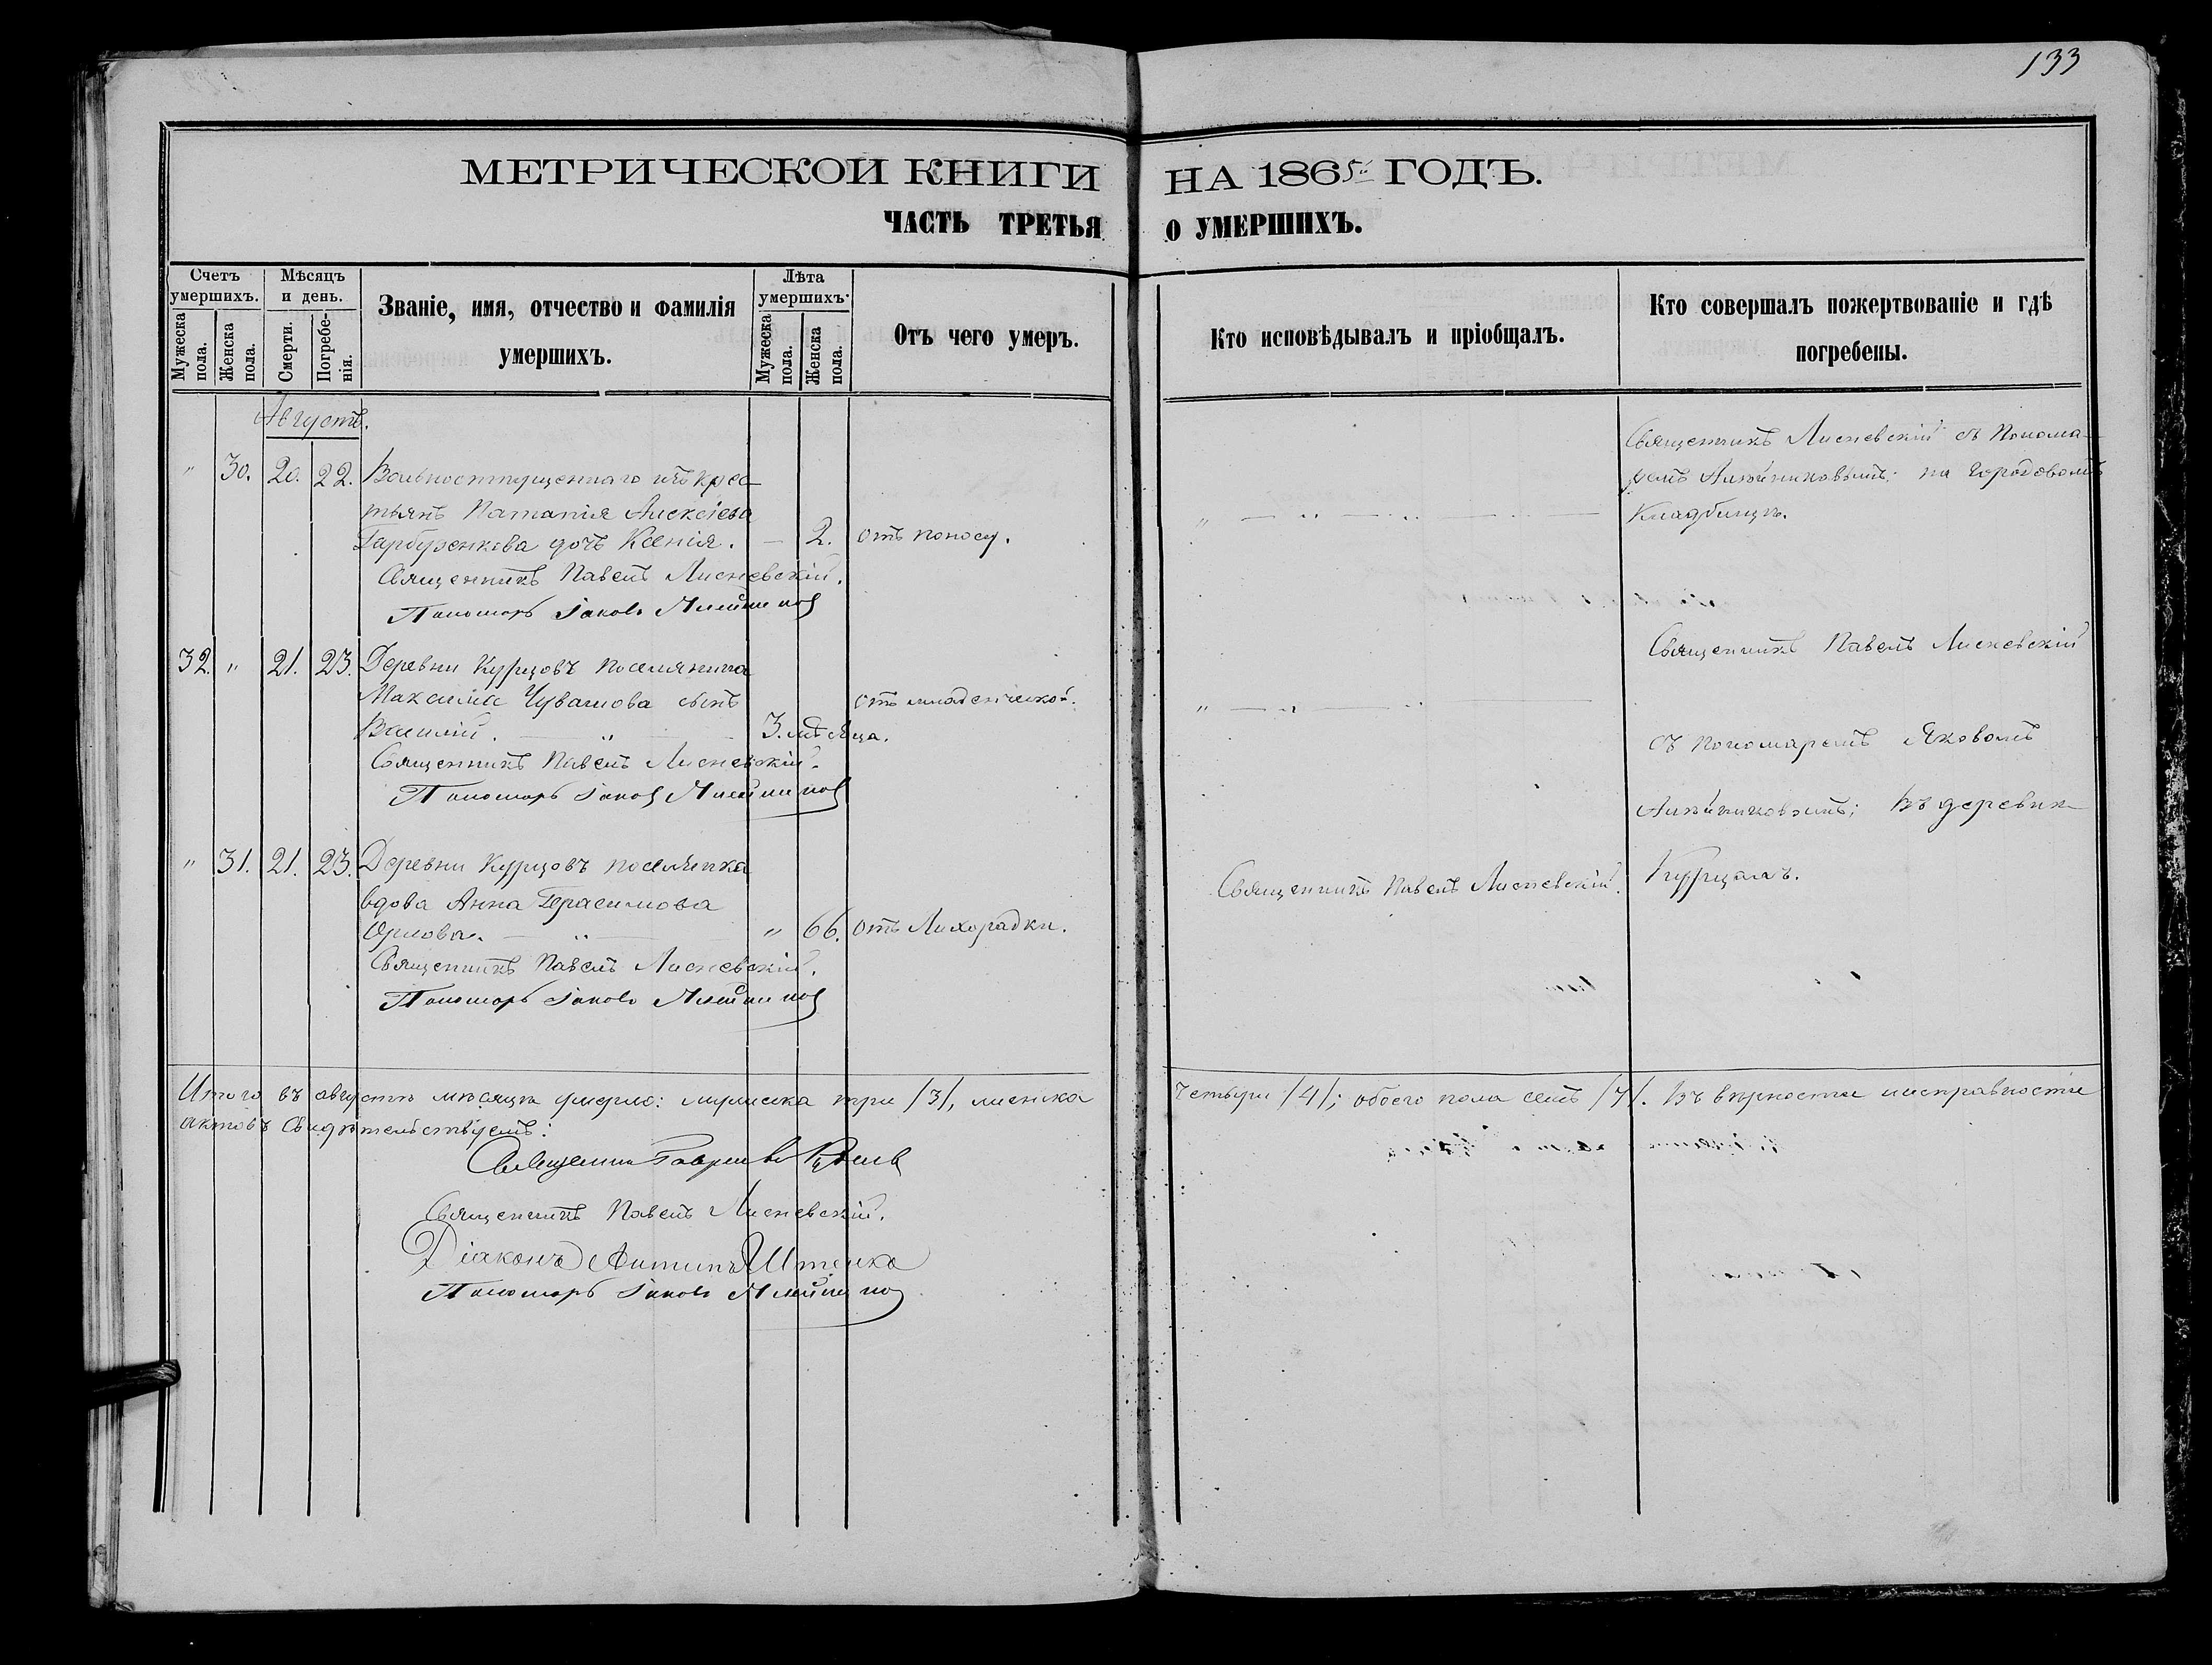 133
МЕТРИЧЕСКОЙ КНИГИ НА 1865й ГОДЪ.
ЧАСТЬ ТРЕТЬЯ О УМЕРШИХЪ.
Счетъ умершихъ.
Мужеска пола.
Женска пола.
Мѣсяцъ и день.
Смерти.
Погребенія.
Званіе, имя, отчество и фамилія
умершихъ.
Лѣта умершихъ.
Мужеска пола.
Женска пола.
Отъ чего умеръ.
Кто исповѣдывалъ и пріобщалъ.
Кто совершалъ пожертвованіе и гдѣ
погребены.
Августъ.
" 30. 20. 22. Вольноотпущеннаго изъ крес-
тьянъ Алексѣева
дочь Ксенія. — 2. отъ поносу.
Священникъ Павелъ Лисневскій.
Пономарь Іаковъ
Священникъ Лисневскій съ Понома-
ремъ на Городовомъ
Кладбищѣ.
32. " 21. 23. Деревни Курцовъ поселянина
Максима Чувашова сынъ
Василій. — " — 3. мѣсяца. отъ младенческой.
Священникъ Павелъ Лисневскій.
Пономарь Іаковъ
Священникъ Павелъ Лисневскій
съ пономаремъ Яковомъ
въ деревнѣ
Курцахъ.
" 31. 21. 23. Деревни Курцовъ поселянка
вдова Анна Герасимова
Орлова. — " — " 66. отъ Лихорадки.
Священникъ Павелъ Лисневскій.
Пономарь Іаковъ
Священникъ Павелъ Лисневскій.
Итого въ августѣ мѣсяцѣ умерло: мужеска три /3/, женска четыри /4/; обоего пола семь /7/. Въ вѣрности и исправности
актовъ свидѣтельствуемъ:
Священникъ
Священникъ Павелъ Лисневскій.
Діаконъ Антипъ Штенко
Пономарь Іаковъ